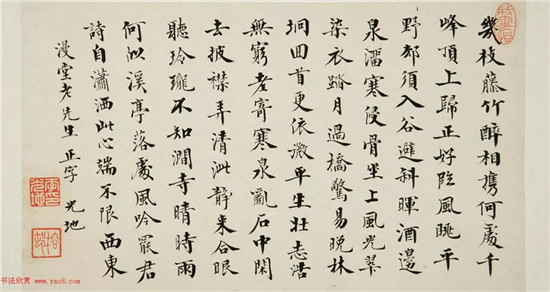 幾枝藤竹醉相攜何處千
峰頂上歸正好臨風眺平
野却須入谷避斜暉酒邊
泉溜寒侵骨坐上風光翠
染衣踏月過橋驚易晚林
坰回首更依微半生壮志浩
無窮老寄寒泉亂石中閑
去披襟弄清泚静來合眼
聽玲瓏不知澗寺晴時雨
何似溪亭落處風吟罷君
詩自瀟洒此心端不限西東
漫堂老先生正字 光地
书法欣赏@www.yac8.com